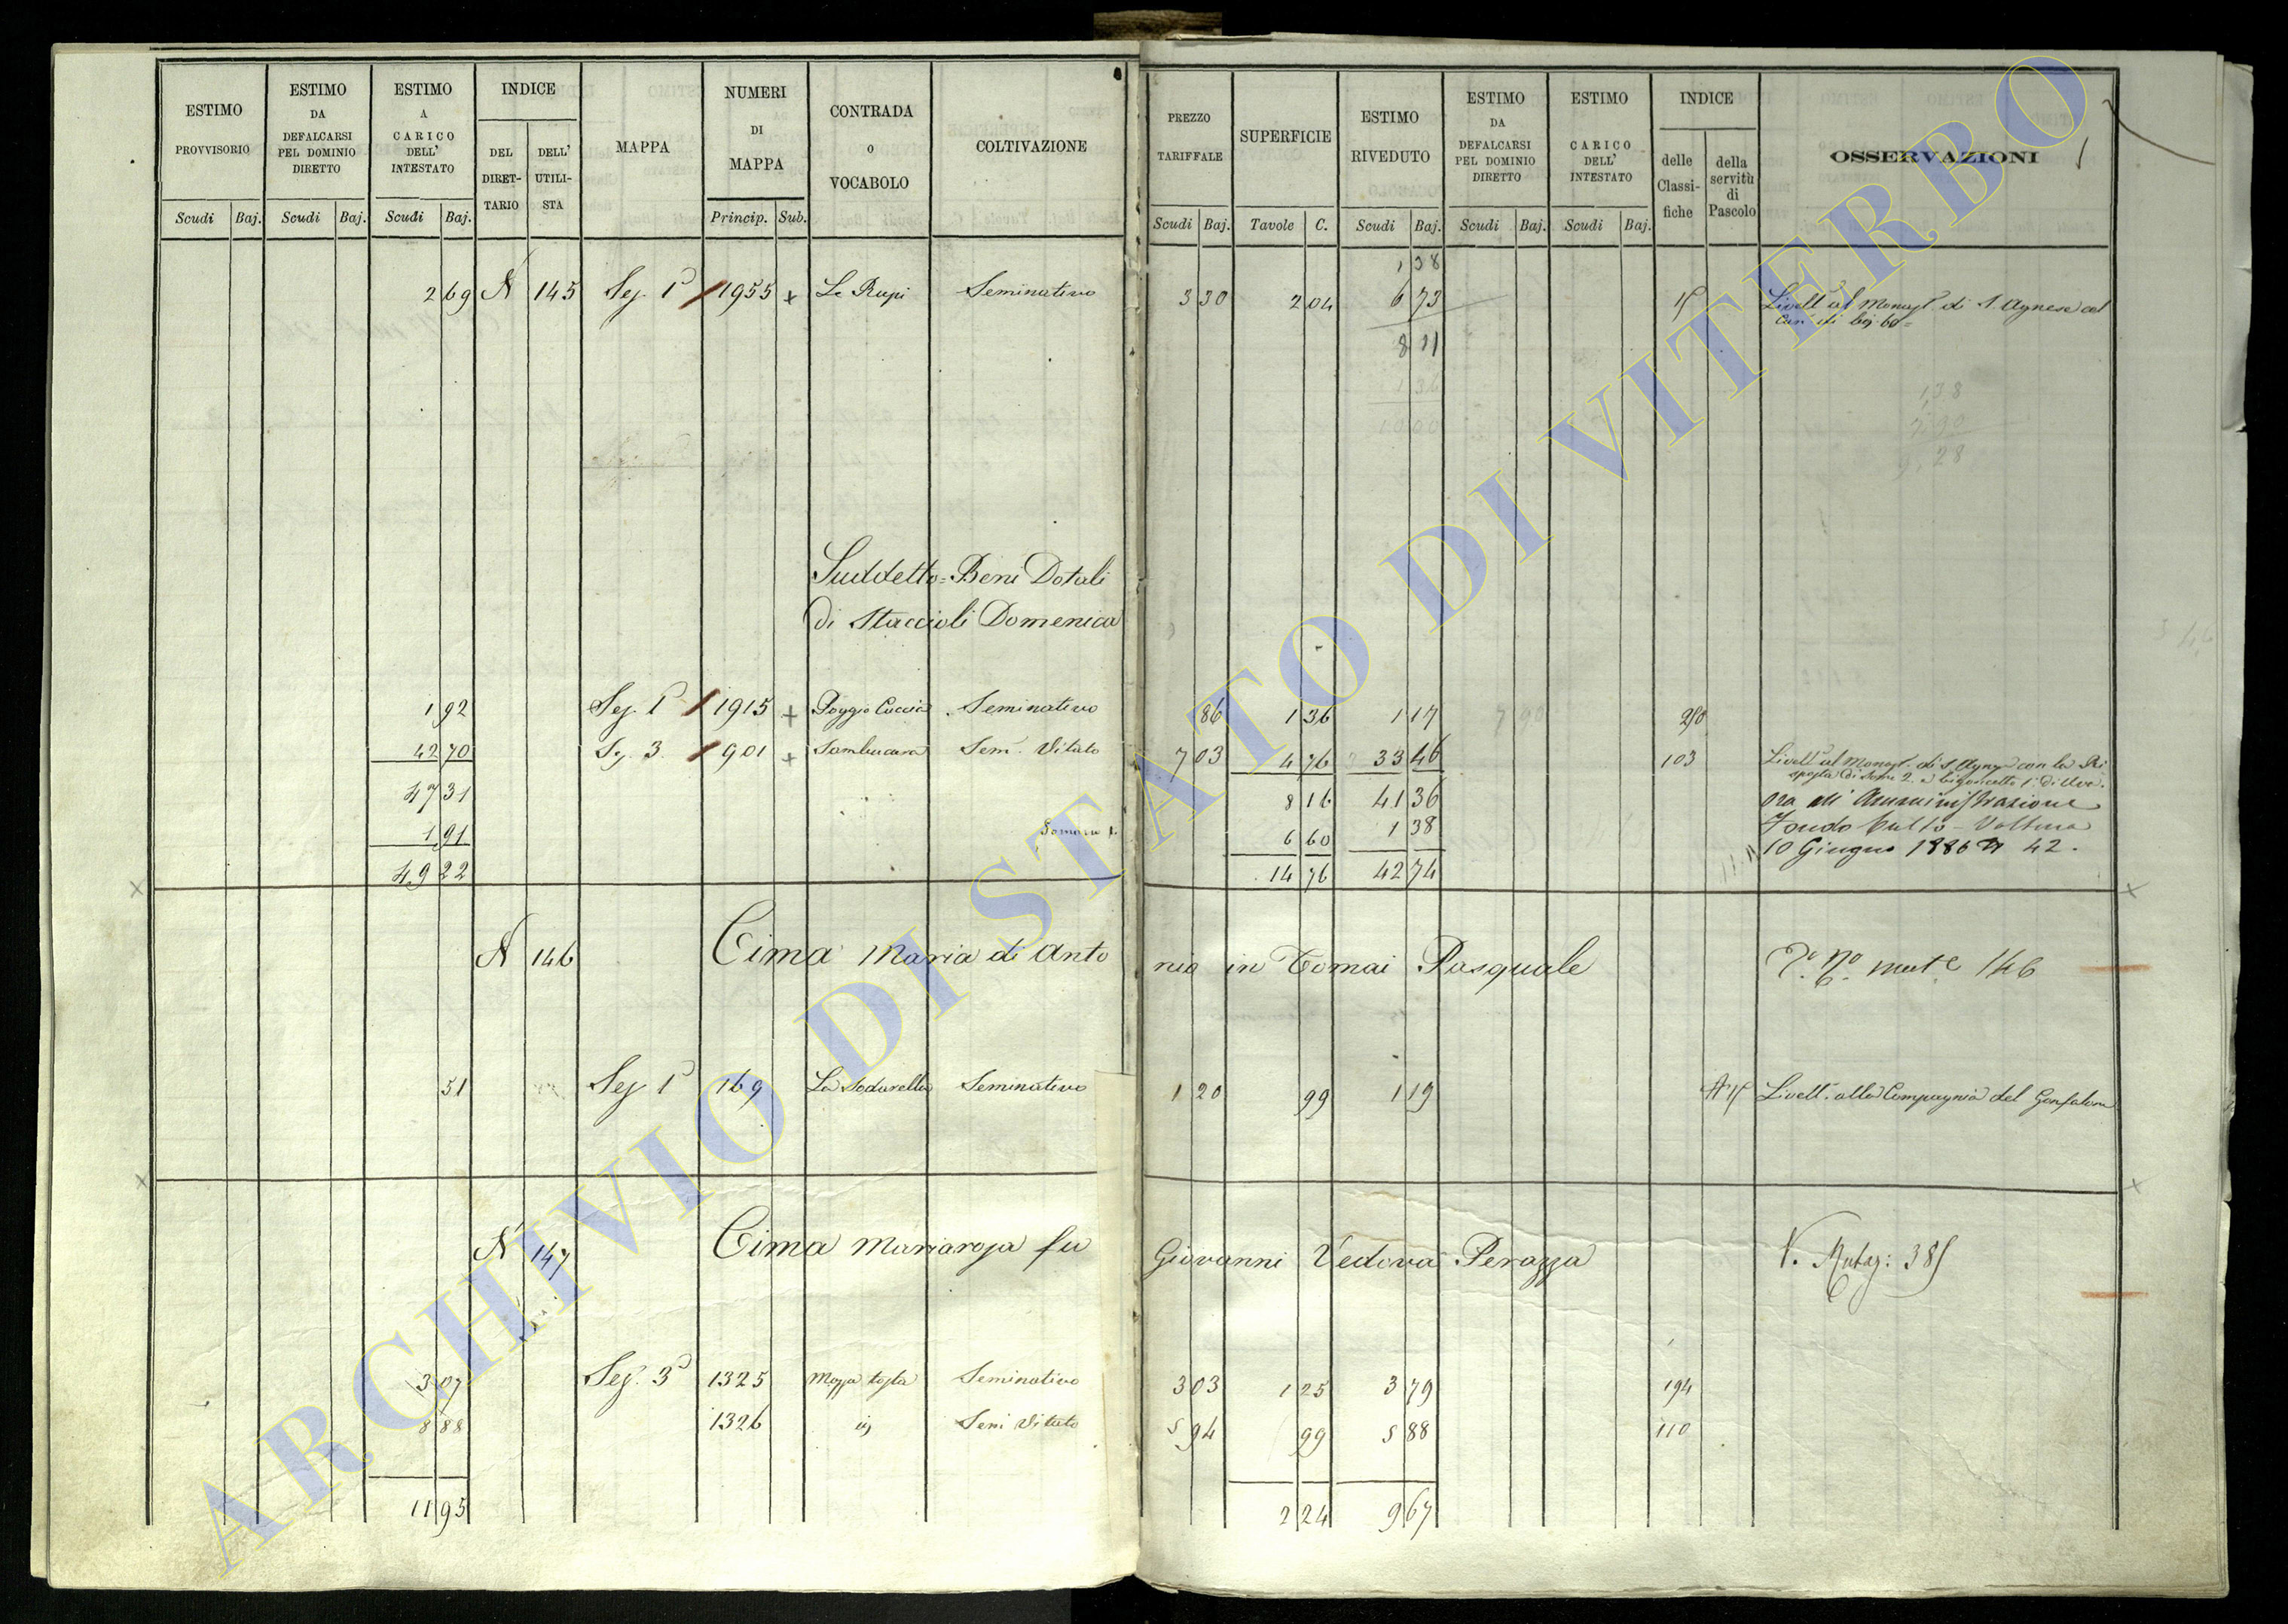 ESTIMO PROVVISORIO
ESTIMO DA DEFALCARSI PEL DOMINIO DIRETTO
ESTIMO A CARICO DELL' INTESTATO
INDICE
DEL DIRETTARIO
DELL' UTILISTA
MAPPA
NUMERI DI MAPPA
CONTRADA O VOCABOLO
COLTIVAZIONE
Scudi Baj. Scudi Baj. Scudi Baj. Princip. Sub.
PREZZO TARIFFALE
SUPERFICIE
ESTIMO RIVEDUTO
ESTIMO DA DEFALCARSI PEL DOMINIO DIRETTO
ESTIMO CARICO DELL' INTESTATO
INDICE
delle Classifiche
della servitù di Pascolo
OSSERVAZIONI
Scudi Baj. Tavole C. Scudi Baj. Scudi Baj. Scudi Baj.
1 38
2 69 N 145 Sez. 1ª 1955 + Le Rupi Seminativo 3 30 2 04 6 73 Livell. al Monast. di S. Agnese col
8 11
1 36
10 00
1,38
7,90
9,28
Suddetto = Beni Dotali
di Staccioli Domenica
1 92 Sez. 1ª 1915 + Poggio Cuccia Seminativo 86 1 36 1 17 7 90
42 70 Sez. 3. 901 + Sambucara Sem. Vitato 7 03 4 76 33 46 103 Livell. al Monast. di S. Agnese con la Ri
sposta di some 2. e bigoncetto 1. di Uva.
47 31 8 16 41 36 ora all Amministrazione
1 91 6 60 1 38 Fondo Culto - Voltura
49 22 14 76 42 74 10 Giugno 1886 N 42.
N 146 Cima Maria di Anto nio in Tomai Pasquale 146
51 Sez. 1ª 169 La Sodarella Seminativo 1 20 99 1 19 Livell. alla Compagnia del Gonfalone
N 147 Cima Mariarosa fu Giovanni Vedova Perazza
3 07 Sez. 3ª 1325 Seminativo 3 03 1 25 3 79 194
8 88 1326 Sem Vitato 5 94 99 5 88 110
11 95 2 24 9 67
ARCHIVIO DI STATO DI VITERBO